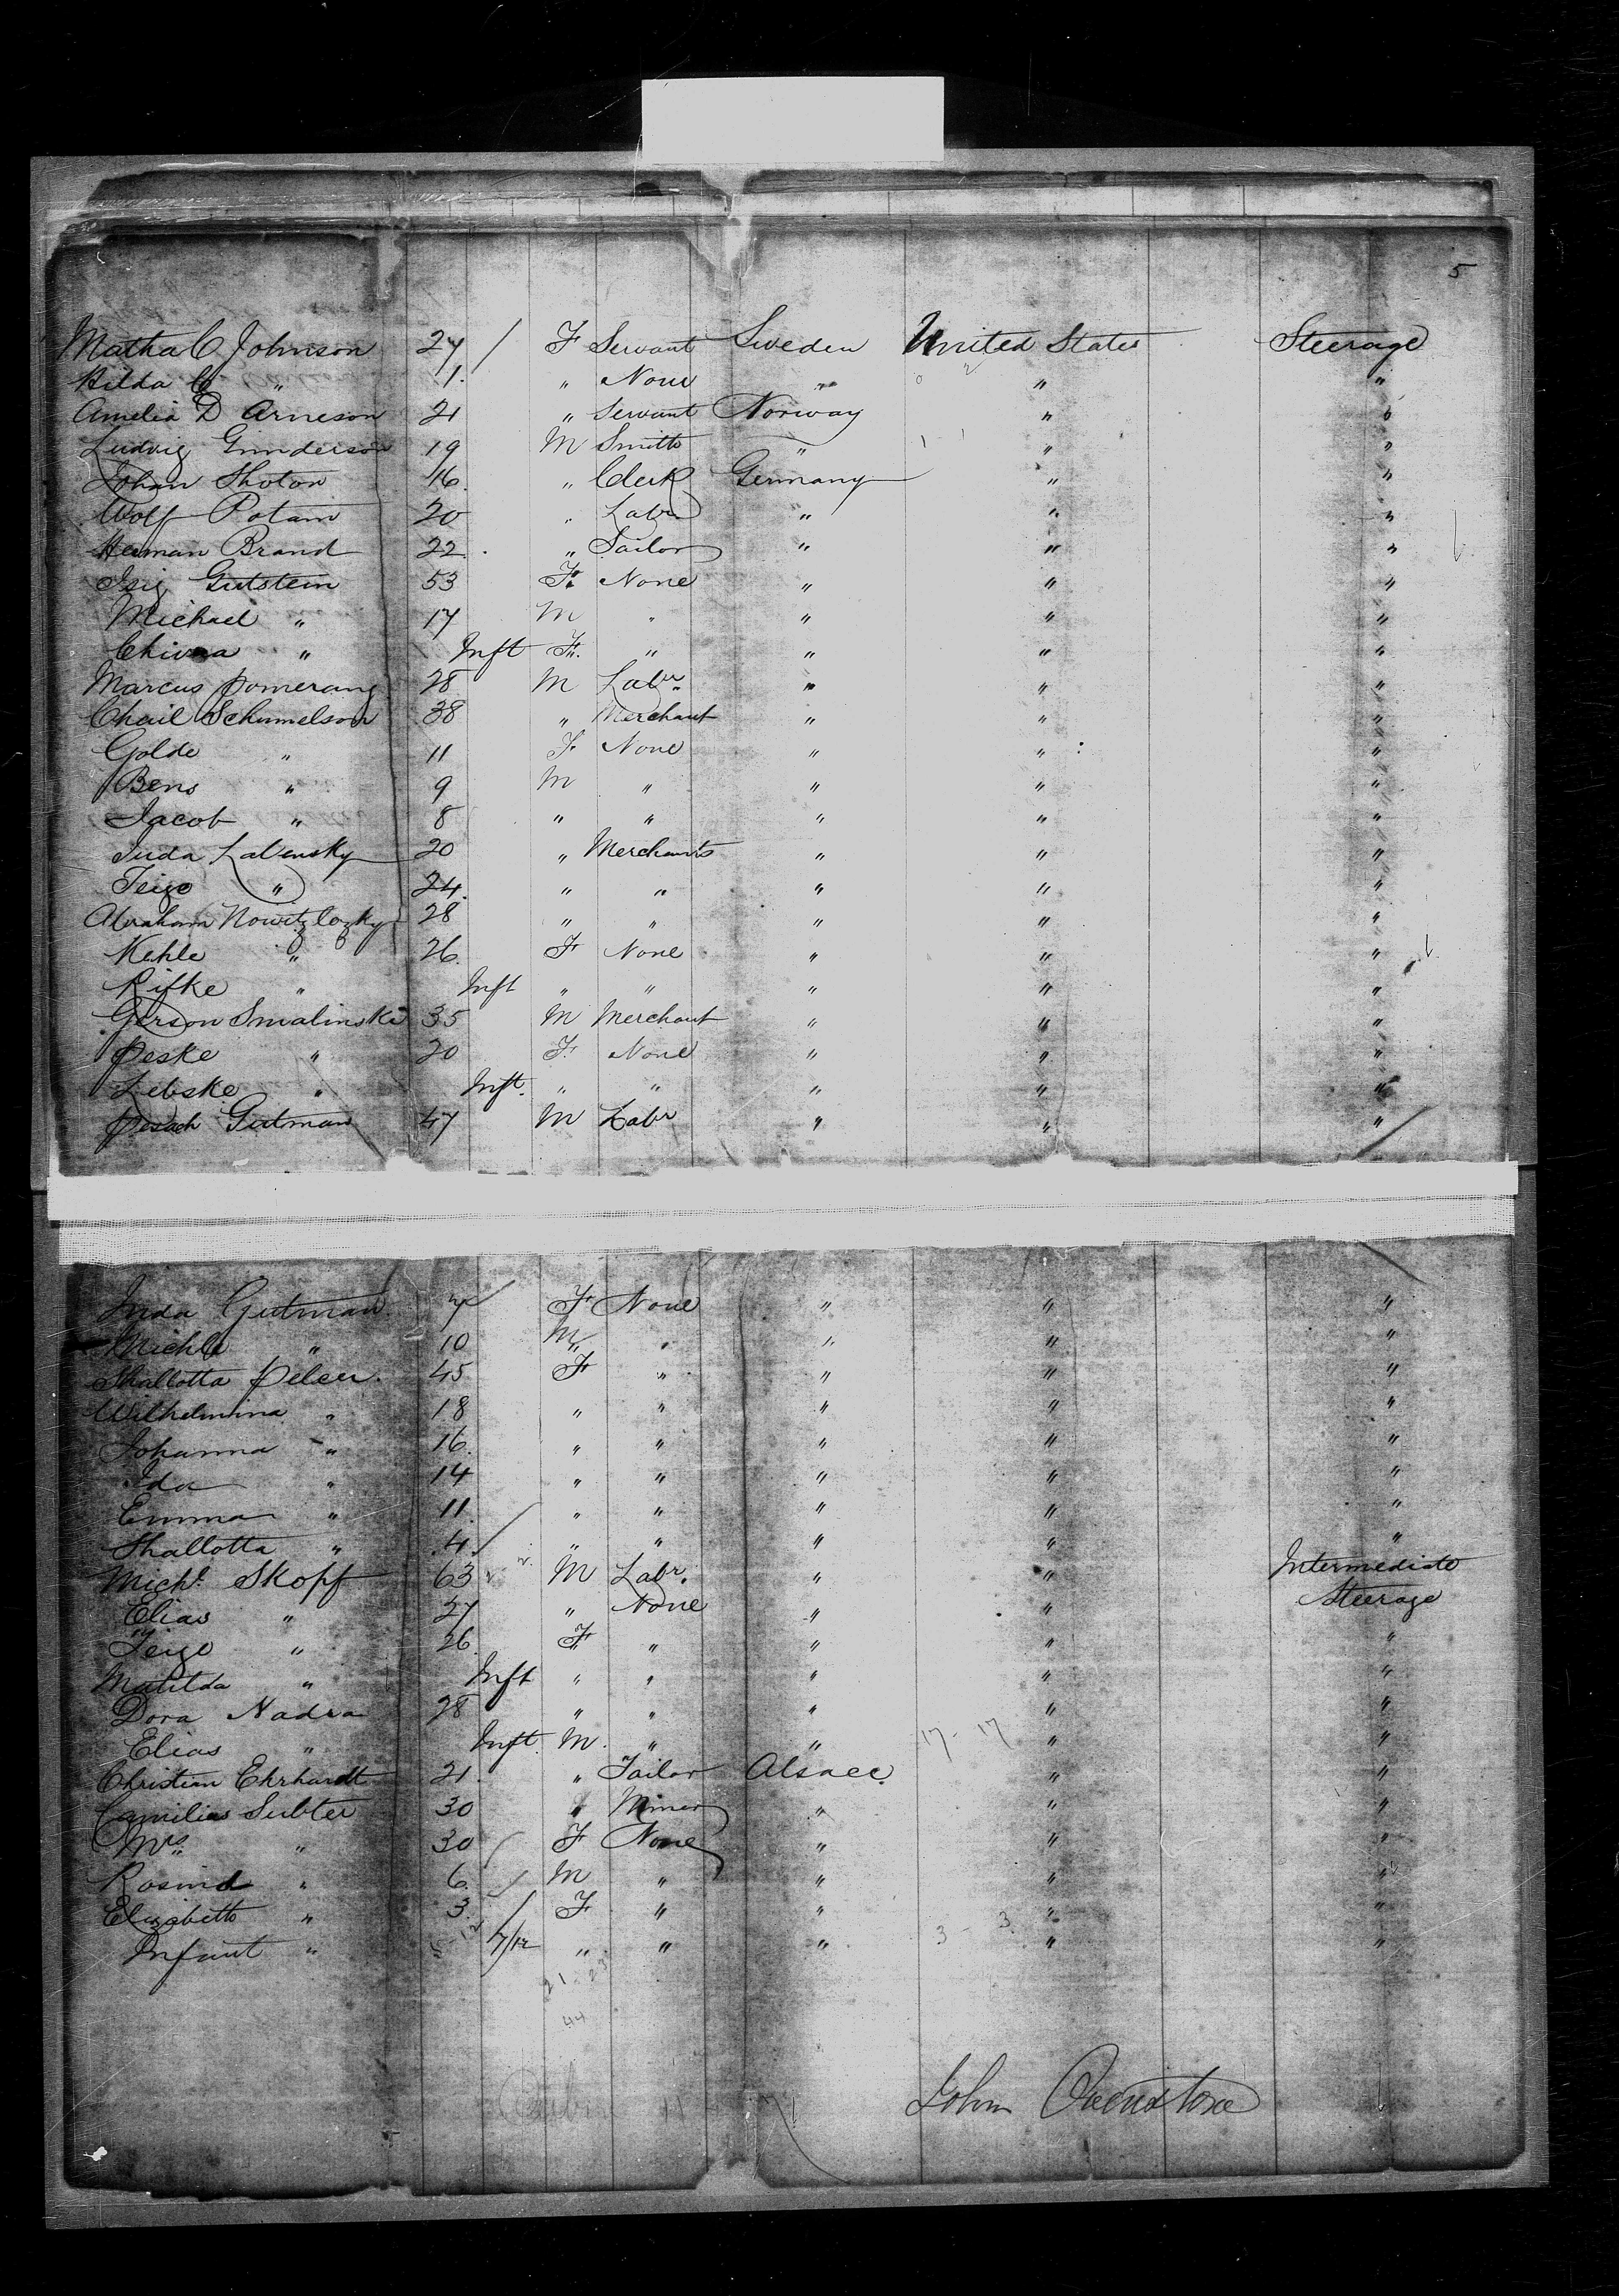 5
Matha C Johnson 27 / F Servant Sweden United States Steerage
Hilda C " 1. " None " " "
Amelia D Arneson 21 " Servant Norway " "
Ludvig Gunderson 19 M Smith " 1 - 1 " "
Johan Shoton 16. " Clerk Germany " "
Wolf Potam 20 " Labr " " "
Herman Brand 22. " Tailor " " "
Isig Gutstein 53 F. None " " "
Michael " 17 M " " " "
" Inft F. " " " "
Marcus Pomerang 28 M Labr. " " "
Chail Schumelson 38 " Merchant " " "
Golde " 11 F. None " " "
Bens " 9 M " " " "
Jacob " 8 " " " " "
Juda Labensky 20 " Merchants " " "
Teige " 24. " " " " "
Abraham 28 " " " " "
Kehle " 26. F None " " "
Rifke " Inft " " " " "
Gerson Smalinski 35 M Merchant " " "
Peske " 20 F. None " " "
Lebske " Inft. " " " " "
Pesach Gutman 47 M Labr " " "
Juda Gutman F. None " " "
Michle " 10 M " " " "
Shallotta Pelcer 45 F " " " "
Wilhelmina " 18 " " " " "
Johanna " 16. " " " " "
Ida " 14 " " " " "
Emma " 11. " " " " "
Shallotta " 4. / " " " " "
Michl. Skopf 63 M Labr. " " Intermediate
Elias " 27 " None " " Steerage
Teige " 26 F " " " "
Matilda " Inft " " " " "
Dora Nadra 28 " " " " "
Elias " Inft. M. " " 17 - 17 " "
Christian Ehrhardt 21. " Tailor Alsace. " "
Camilias Subter 30 " Miner " " "
Mrs. " 30 / F None " " "
Rosind " 6. / M " " " "
Elizabeth " 3. / F " " 3 - 3 " "
Infant " 7/12 " " " " "
21 - 23
44
John